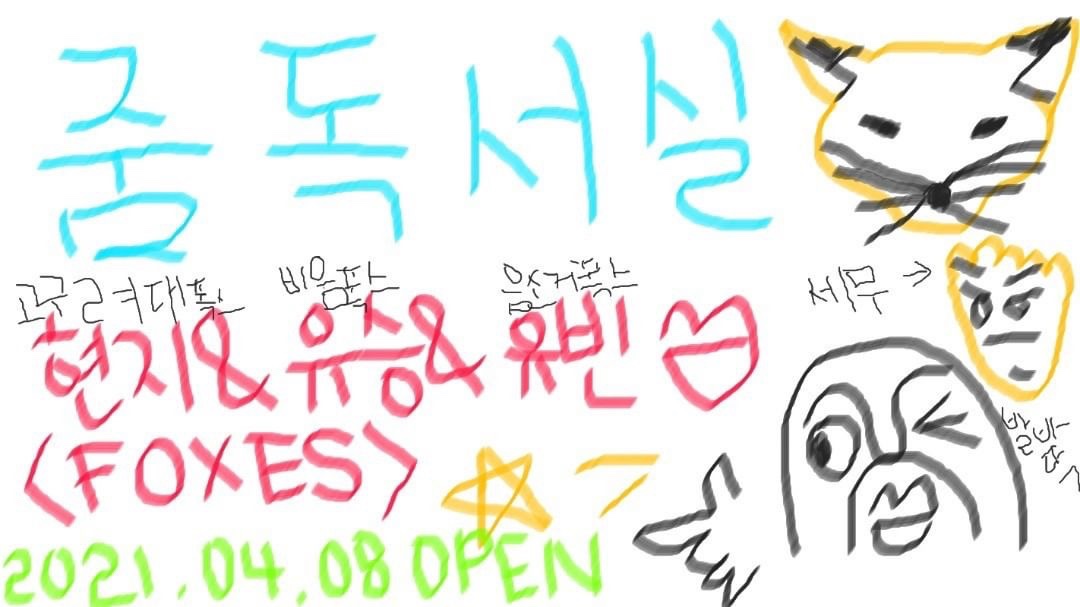 줌독서실
고구려대폭스 비움팍스 음쓰커팍스
현지&유승&유빈
<FOXES>
2021.04.08 OPEN
세무→
발바닥